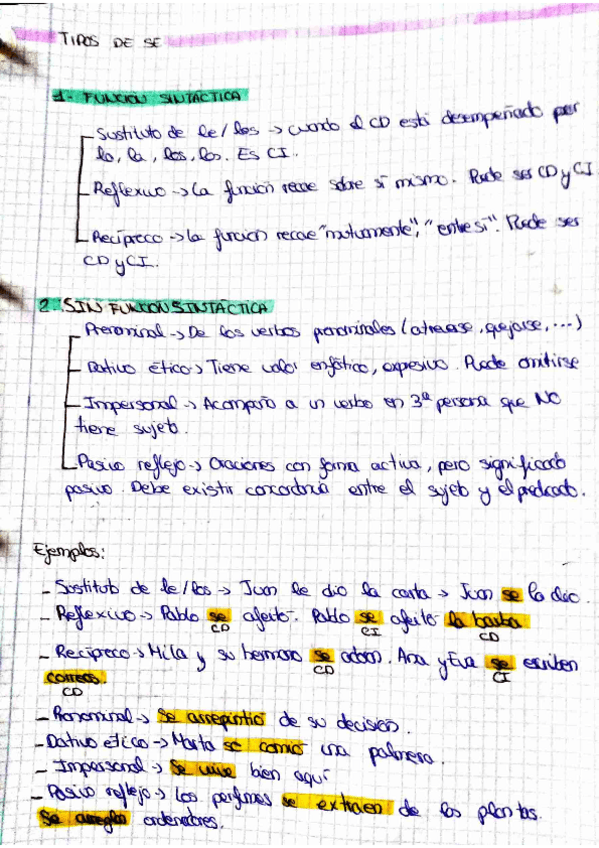 TIPOS DE SE
1- FUNCIÓN SINTÁCTICA
Sustituto de le/les -> cuando el CD está desempeñado por
lo, la, los, las. Es CI.
Reflexivo -> La función recae sobre sí mismo. Puede ser CD y CI
Recíproco -> la función recae "mutuamente", "entre sí". Puede ser
CD y CI.
2. SIN FUNCIÓN SINTÁCTICA
Pronominal -> De los verbos pronominales (atreverse, quejarse, ...)
Dativo ético -> Tiene valor enfático, expresivo. Puede omitirse
Impersonal -> Acompaña a un verbo en 3ª persona que NO
tiene sujeto.
Pasivo reflejo -> Oraciones con forma activa, pero significado
pasivo. Debe existir concordancia entre el sujeto y el predicado.
Ejemplos:
- Sustituto de le/les -> Juan le dio la carta -> Juan se la dio.
- Reflexivo -> Pablo se afeitó. Pablo se afeitó la barba
CD CI CD
- Recíproco -> Mila y su hermano se adoran. Ana y Eva se escriben
CD CI
correos.
CD
- Pronominal -> Se arrepintió de su decisión.
- Dativo ético -> Marta se comió una palmera.
- Impersonal -> Se vive bien aquí
- Pasivo reflejo -> Los perfumes se extraen de las plantas.
Se arreglan ordenadores.